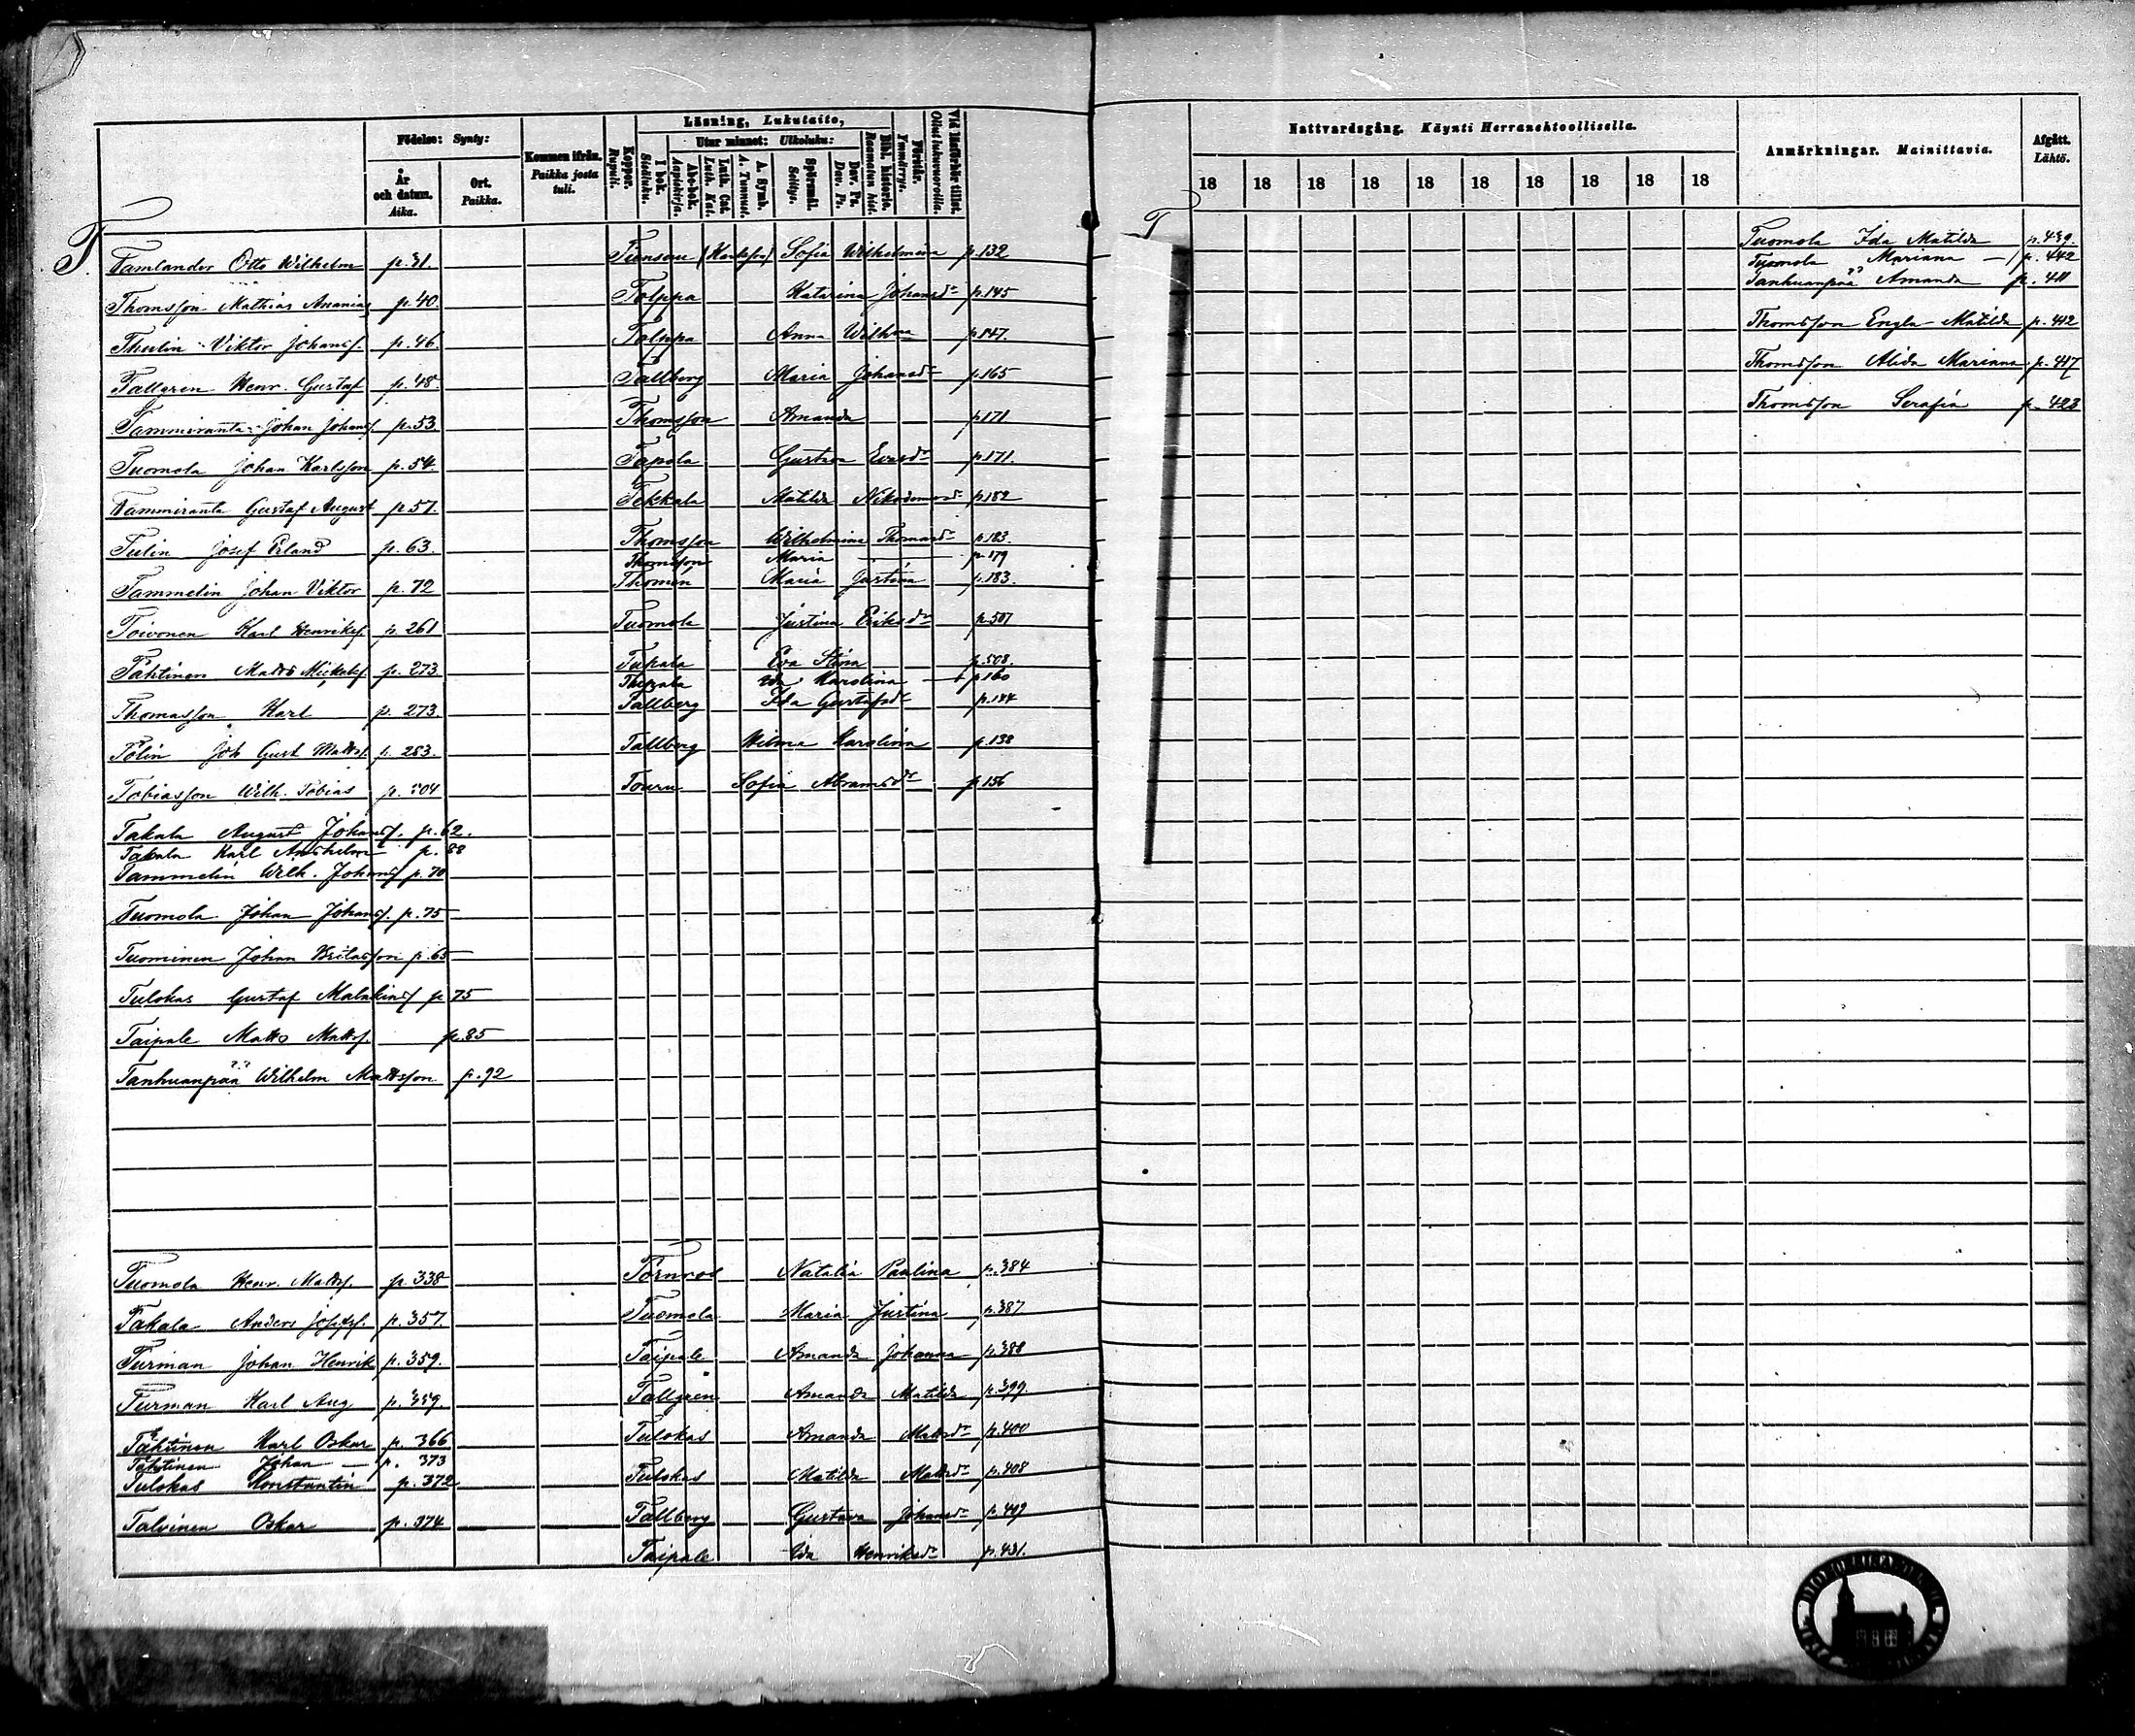 Läsning, Lukutaito,
Födelse: Synty:
Kommen ifrån.
Paikka josta
tuli.
Koppor.
Rupuli.
I bok.
Sisäluku.
Utur minnet: Ulkoluku:
Abc-bok.
Aapiskirja.
Luth. Cat.
Luth. Kat.
A. Symb.
A. Tunnust.
Spörsmål.
Selitys.
Dav. Ps.
Dav. Ps.
Bibl. historia.
Raamatun hist.
Förstår.
Ymmärrys.
Vid läsförhör tillst.
Ollut lukuvuoroilla.
År
och datum.
Aika.
Ort.
Paikka.
T.
Tamlander Otto Wilhelm p. 31.
Thomsson Mathias Ananias p. 40.
Thulin Viktor Johansf. p. 46.
Tallgren Henr. Gustaf p. 48.
Tammiranta Johan Johansf. p. 53
Tuomola Johan Karlsson p. 54.
Tammiranta Gustaf August p. 57.
Tulin Josef Erland p. 63.
Tammelin Johan Viktor p. 72
Toivonen Karl Henriksf. p. 261
Tähtinen Matts Mickelsf. p. 273.
Thomasson Karl p. 273.
Tölin Joh Gust Mattsf. p. 283.
Tobiasson Wilh. Tobias p. 304
Takala August Johansf. p. 62.
Takala Karl Anshelm p. 88
Tammelin Wilh. Johansf p. 70
Tuomola Johan Johansf. p. 75
Tuominen Johan Britasson p. 65
Tulokas Gustaf Malakiasf p. 75
Taipale Matts Mattsf. p. 85
Tanhuanpää Wilhelm Mattsson p. 92
Tuomola Henr. Mattsf. p. 338
Takala Anders Josefsf. p. 357.
Turman Johan Henrik p. 359.
Turman Karl Aug p. 359.
Tähtinen Karl Oskar p. 366
Tähtinen Johan — p. 373
Tulokas Konstantin p. 372
Talvinen Oskar p. 374
(Karlsson) Sofia Wilhelmina p. 132
Tolppa Katarina Johansdr p. 145
Tolppa Anna Wilhma p. 147.
Tallberg Maria Johansdr p. 165
Thomsson Amanda p. 171
Tapola Gustava Evasdr p. 171.
Tekkala Matilda Nikodemusdr p. 182
Thomsson Wilhelmina Thomasdr p. 183.
Thomsson Maria p. 179
Thomén Maria Justina p. 183.
Tuomola Justina Eriksdr p. 507
Tupala Eva Stina p. 508.
Ida Karolina p. 160
Tallberg Ida Gustafsdr p. 144
Tallberg Hilma Karolina p. 138
Touru Sofia Abramsdr p. 156
Törnroos Natalia Paulina p. 384
Tuomola Maria Justina p. 387
Taipale Amanda Johanna p. 388
Tallgren Amanda Matilda p. 399.
Tulokas Amanda Mattsdr p. 400
Tulokas Matilda Mattsdr p. 408
Tallberg Gustava Johansdr p. 419
Taipale Ida Henriksdr p. 431.
T
Nattvardsgång. Käynti Herranehtoollisella.
18 18 18 18 18 18 18 18 18 18
Anmärkningar. Mainittavia.
Afgått.
Lähtö.
Tuomola Ida Matilda p. 439.
Tuomola Mariana — p. 442
Tanhuanpää Amanda p. 411
Thomsson Engla Matilda p. 412
Thomsson Alida Mariana p. 417
Thomsson Serafia p. 423